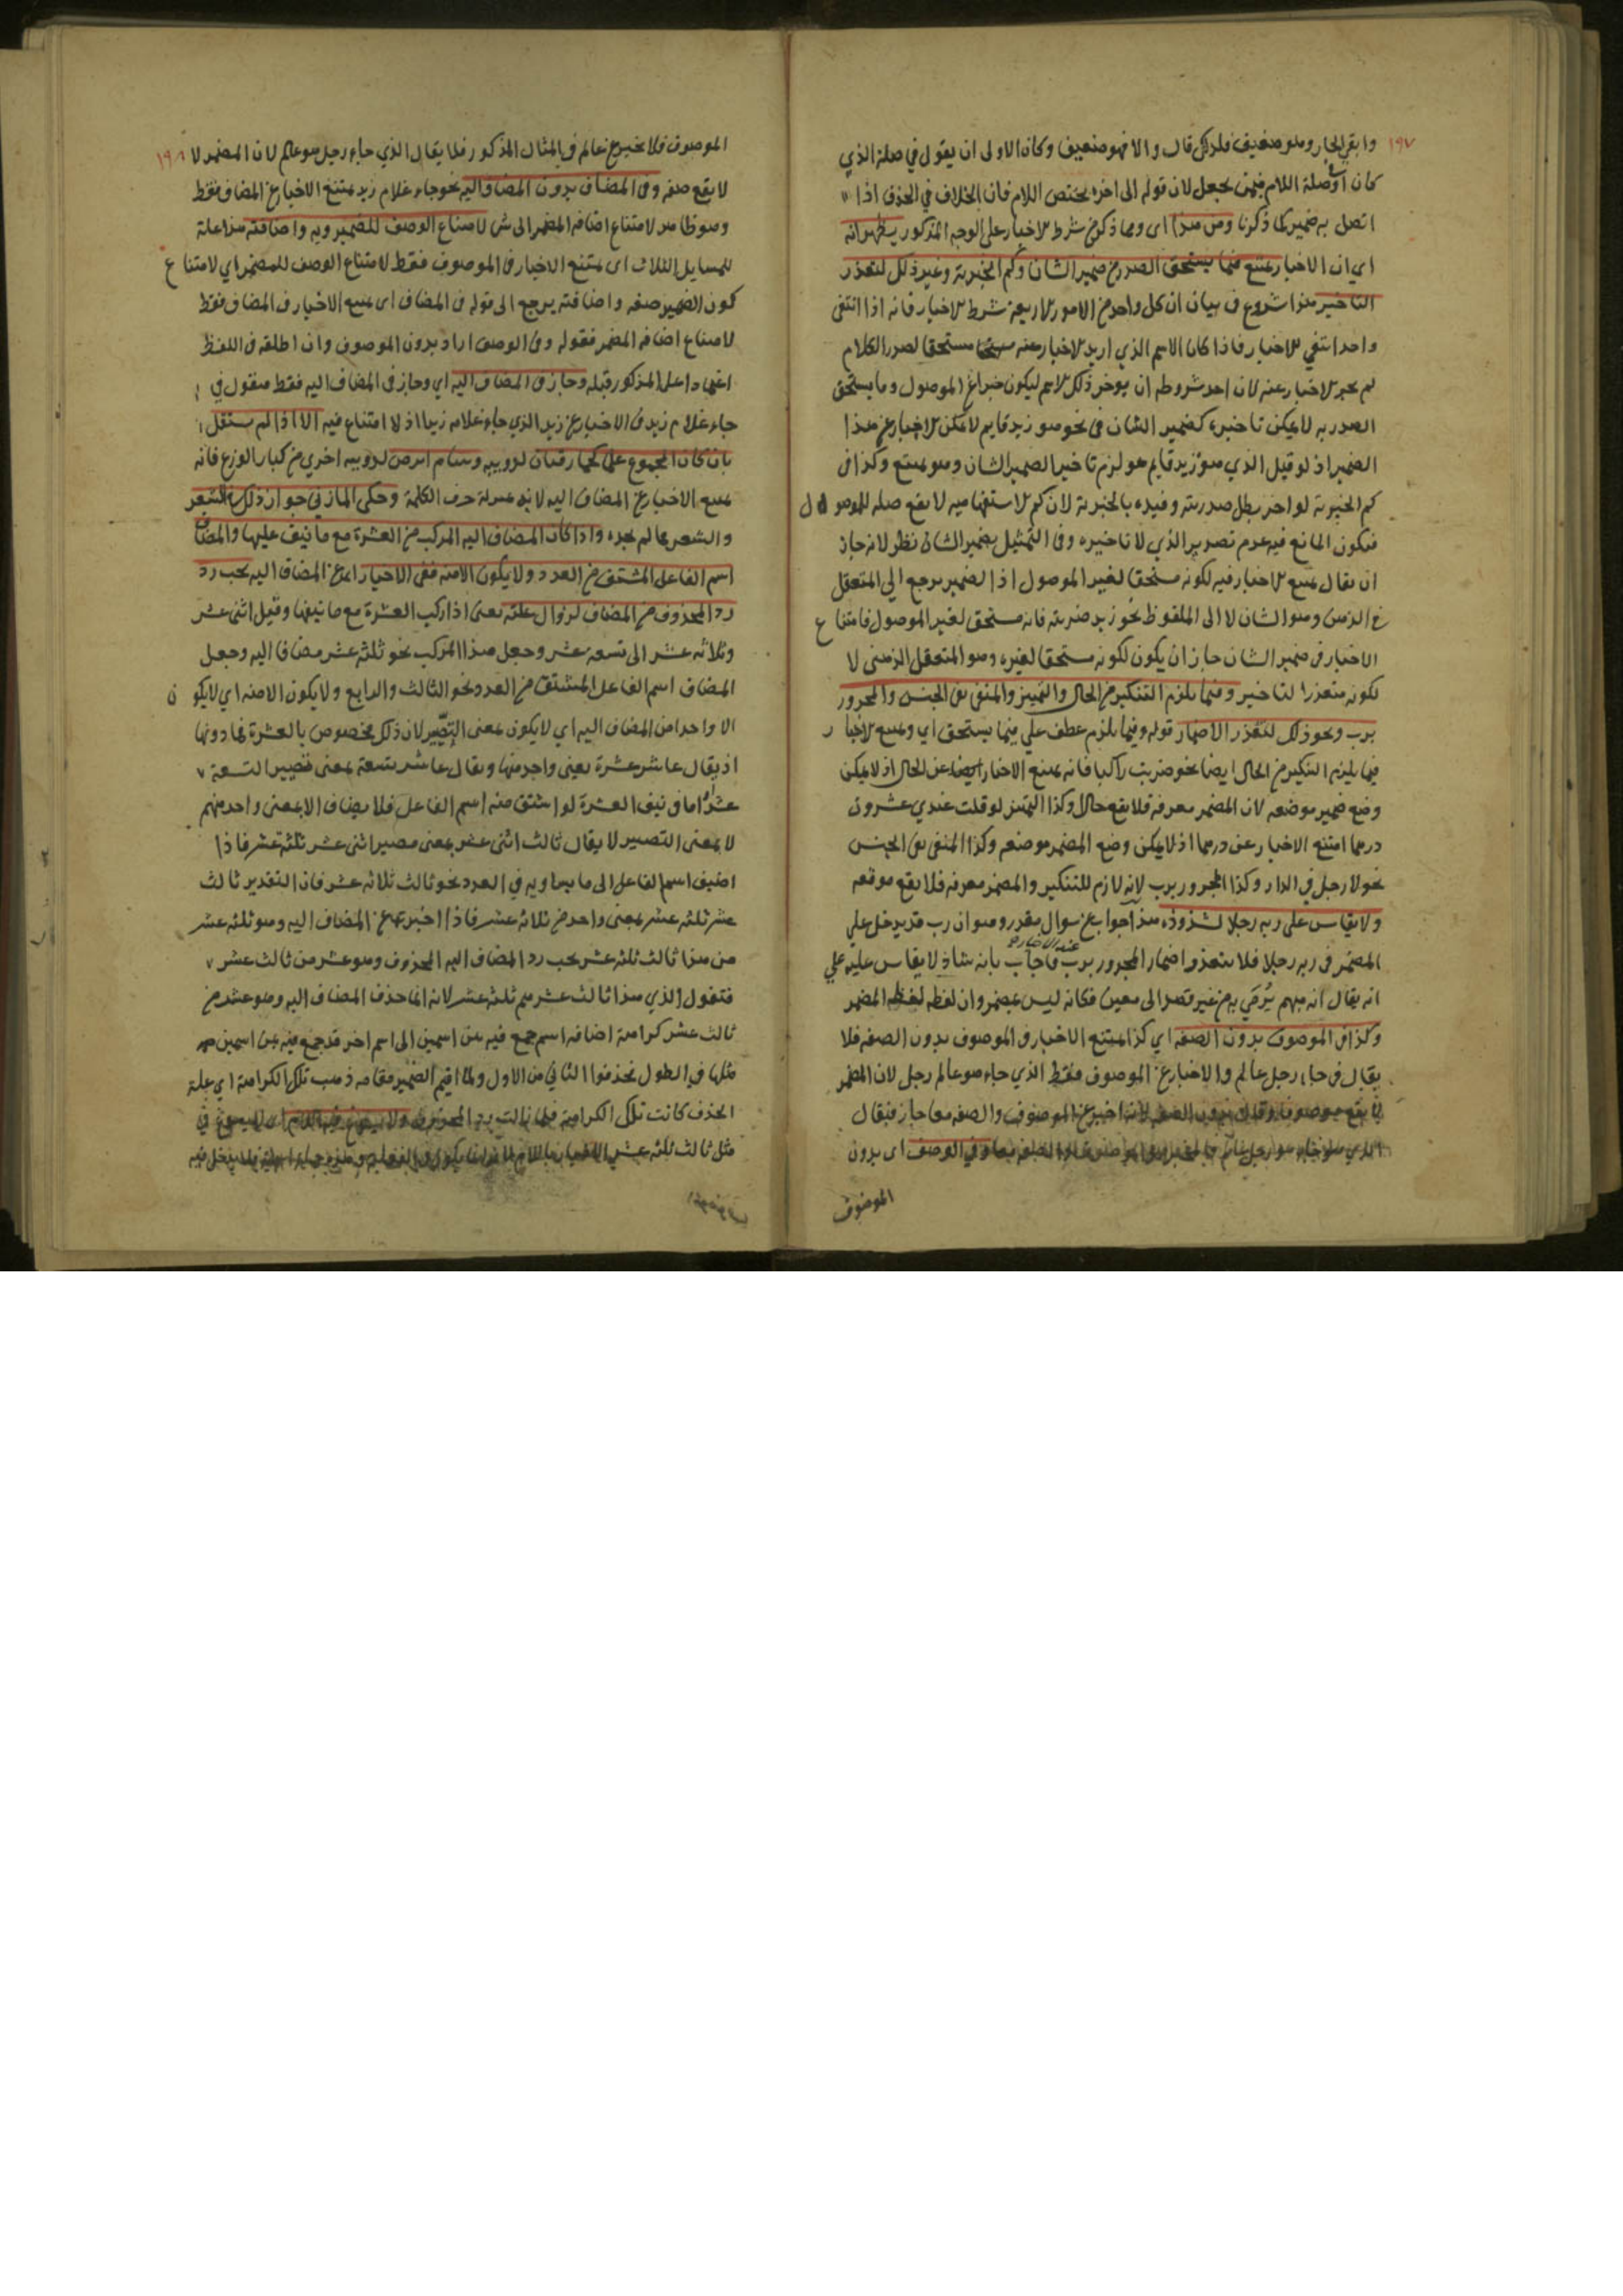 ١٩٧
وابقى الجار وهو ضعيف فلذلك قال والا فهو ضعيف وكان الاولى ان يقول في صلة الذي
كان او صلة اللام فيمن يجعل لان قوله الى اخره يختص اللام فان الخلاف في الحذف اذا
اتصل به ضمير كما ذكرنا ومن هذا اى ومما ذكر من شرط الاخبار على الوجه المذكور يظهر انه
اي ان الاخبار يمتنع فيما يستحق الصدر من ضمير الشان وكم الخبرية وغير ذلك لتعذر
التاخير هذا شروع في بيان ان كل واحد من الامور الاربعة شرط الاخبار فانه اذا انتفى
واحد انتفي الاخبار فاذا كان الاسم الذي اريد الاخبار عنه مستحقا لصدر الكلام
لم يجز الاخبار عنه لان احد شروطه ان يوخر ذلك الاسم ليكون خبرا عن الموصول وما يستحق
الصدر به لا يمكن تاخيره كضمير الشان في نحو هو زيد قايم لا يمكن الاخبار عن هذا
الضمير اذ لو قيل الذي هو زيد قايم هو لزم تاخير الضمير الشان وهو ممتنع وكذا في
كم الخبرية لو اخر بطل صدريته وقيده بالخبرية لان كم الاستفهامية لا يقع صلة للموصول
فيكون المانع فيه عدم تصدير الذي لا تاخيره وفي التمثيل بضمير الشان نظر لانه جاز
ان يقال يمتنع الاخبار فيه لكونه مستحقا لغير الموصول اذ الضمير يرجع الى المتعقل
في الذهن وهو الشان لا الى الملفوظ نحو زيد ضربته فانه مستحق لغير الموصول فامتناع
الاخبار في ضمير الشان جاز ان يكون لكونه مستحقا لغيره وهو المتعقل الذهني لا
لكونه متعذر التاخير وفيما يلزم التنكير من الحال والتمييز والمنفي لنفي الجنس والمجرور
برب ونحو ذلك لتعذر الاضمار قوله وفيما يلزم عطف على فيما يستحق اي ويمتنع الاخبار
فيما يلزم التنكير من الحال ايضا نحو ضربت راكبا فانه يمتنع الاخبار ايضا عن الحال اذ لا يمكن
وضع ضمير موضعه لان المضمر معرفة فلا يقع حالا وكذا التمييز لو قلت عندي عشرون
درهما امتنع الاخبار عن درهما اذ لا يمكن وضع المضمر موضعه وكذا المنفي لنفي الجنس
نحو لا رجل في الدار وكذا المجرور برب لانه لازم للتنكير والمضمر معرفة فلا يقع موقعه
ولا يقاس على ربه رجلا لشذوذه هذا جواب عن سوال مقدر وهو ان رب قد يدخل على
المضمر في ربه رجلا فلا يتعذر اضمار المجرور برب عند الاخبار فاجاب بانه شاذ لا يقاس عليه على
انه يقال انه مبهم يرمي به من غير قصد الى معين فكانه ليس بمضمر وان لفظه لفظ المضمر
وكذا في الموصوف بدون الصفة اي كذا يمتنع الاخبار في الموصوف بدون الصفة فلا
يقال في جاء رجل عالم والاخبار عن الموصوف فقط الذي جاء هو عالم رجل لان المضمر
لا يقع موصوفا وقال بدون الصفة لانه اخبر عن الموصوف والصفة معا جاز فيقال
الذي جاء هو رجل عالم وفي الوصف اى بدون
الموصوف
١٩٨
الموصوف فلا يخبر عن عالم في المثال المذكور فلا يقال الذي جاء رجل هو عالم لان المضمر لا
لا يقع صفة وفي المضاف بدون المضاف اليه نحو جاء غلام زيد يمتنع الاخبار عن المضاف فقط
وهو ظاهر لامتناع اضافة المضمر الى شي لامتناع الوصف للضمير وبه واضافته هذا علة
للمسايل الثلاث اى يمتنع الاخبار في الموصوف فقط لامتناع الوصف للمضمر اي لامتناع
كون الضمير صفة واضافته يرجع الى قوله في المضاف اى يمتنع الاخبار في المضاف فقط
لامتناع اضافة المضمر فقوله وفي الوصف اراد بدون الموصوف وان اطلقه في اللفظ
اعتمادا على المذكور قبله وجاز في المضاف اليه اي وجاز في المضاف اليه فقط فنقول في
جاء غلام زيد في الاخبار عن زيد الذي جاء غلامه زيد اذ لا امتناع فيه الا اذا لم يستقل
بان كان المجموع علما كحمار قبان لدويبه وسام ابرص لدويبه اخري من كبار الوزغ فانه
يمتنع الاخبار عن المضاف اليه لانه بمنزلة حرف الكلمة وحكى المازني جواز ذلك في الشعر
والشعر مما لم نجده واذا كان المضاف اليه المركب من العشرة مع ما نيف عليها والمضاف
اسم الفاعل المشتق من العدد ولا يكون الا منه ففي الاخبار عن المضاف اليه يجب رد
رد المحذوف من المضاف لزوال علته يعني اذا ركب العشرة مع ما نيفها وقيل اثنى عشر
وثلاثه عشر الى تسعه عشر وجعل هذا المركب نحو ثلثه عشر مضافا اليه وجعل
المضاف اسم الفاعل المشتق من العدد نحو الثالث والرابع ولا يكون الا منه اي لا يكون
الا واحدا من المضاف اليه اي لا يكون بمعنى التصيير لان ذلك مخصوص بالعشرة فما دونها
اذ يقال عاشر عشرة بمعنى واحد منها ويقال عاشر تسعة بمعنى مصيير التسعة
عشرة اما في نيف العشرة لو اشتق منه اسم الفاعل فلا يضاف الا بمعنى واحد منهم
لا بمعنى التصيير لا يقال ثالث اثنى عشر بمعنى مصير اثنى عشر ثلثة عشر فاذا
اضيف اسم الفاعل الى ما يساويه في العدد نحو ثالث ثلاثه عشر فان التقدير ثالث
عشر ثلثه عشر بمعنى واحد من ثلاثه عشر فاذا اخبر عن المضاف اليه وهو ثلثه عشر
من هذا ثالث ثلثه عشر يجب رد المضاف اليه المحذوف وهو عشر من ثالث عشر
فتقول الذي هذا ثالث عشرهم ثلثه عشر لانه انما حذف المضاف اليه وهو عشر من
ثالث عشر كراهة اضافة اسم جمع فيه بين اسمين الى اسم اخر قد جمع فيه بين اسمين
مثلها في الطول فحذفوا الثاني من الاول ولما اقيم الضمير مقامه ذهب تلك الكراهة اي علة
الحذف كانت تلك الكراهة فلما زالت رد المحذوف ولا يسوغ فيه اللام اى لا يسوغ في
مثل ثالث ثلثه عشر الاخبار باللام